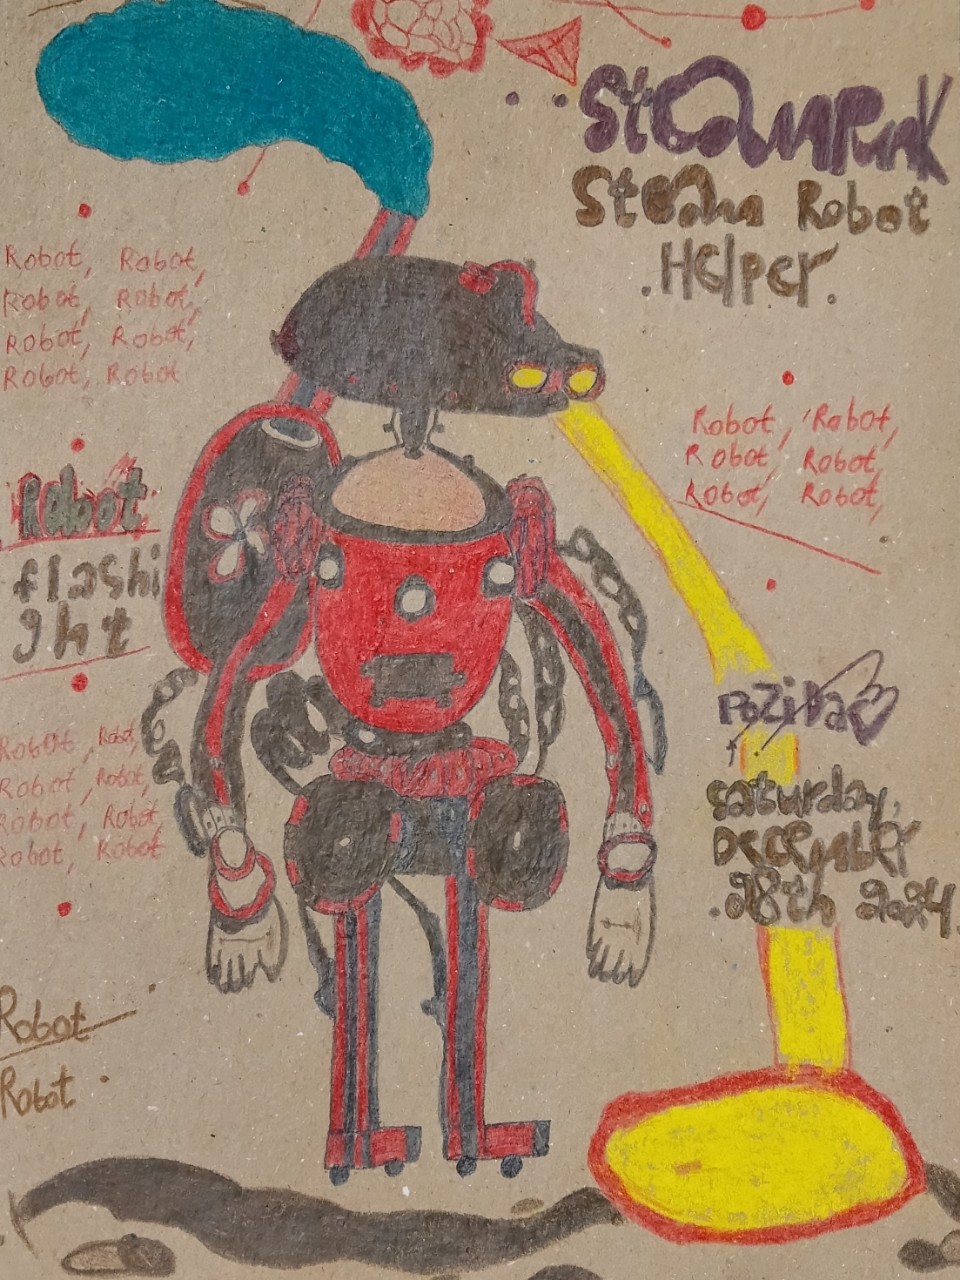 Steampunk
Steam Robot
.Helper.
Robot, Robot,
Robot, Robot,
Robot, Robot,
Robot, Robot
Robot, Robot,
Robot, Robot,
Robot, Robot,
Robot
flashi
ght
Robot, Robot,
Robot, Robot,
Robot, Robot,
Robot, Robot
Saturday,
December
.28th 2024.
Robot
Robot.